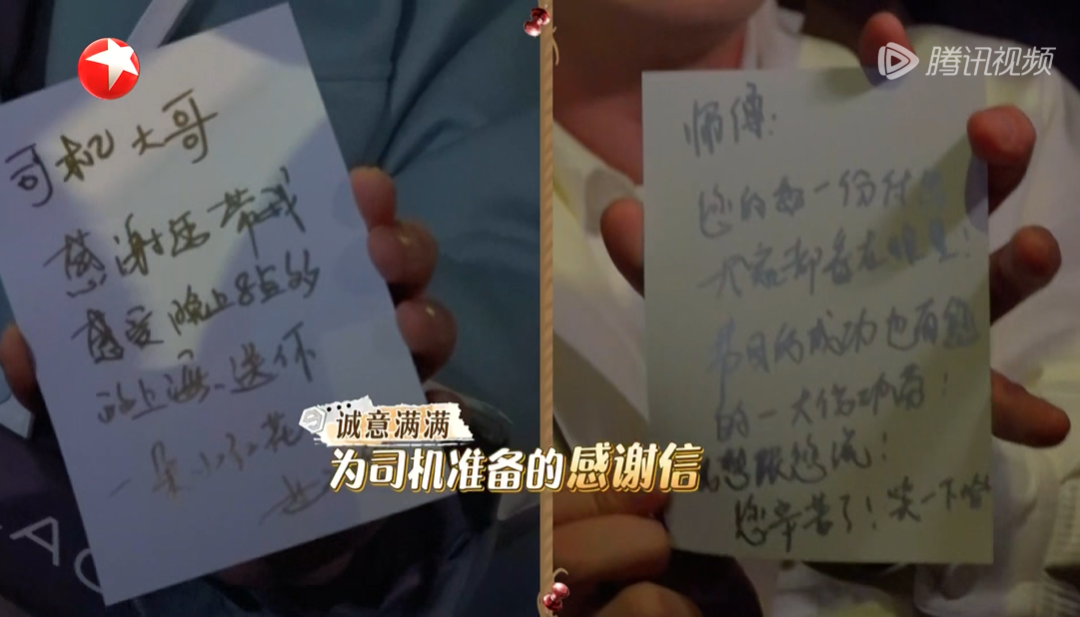 腾讯视频
司机大哥
感谢您带我
感受晚上8点的
的上海、送你
一朵小红花
师傅:
您的每一份付出
大家都看在眼里!
节目的成功也有您
的一大份功劳!
想跟您说:
您辛苦了!笑一下
诚意满满
为司机准备的感谢信